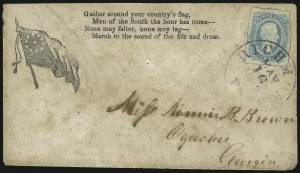 Gather around your country's flag,
Men of the South the hour has come—
None may falter, none may lag—
March to the sound of the fife and drum.
RICHM
Miss Nannie B. Brown
Georgia